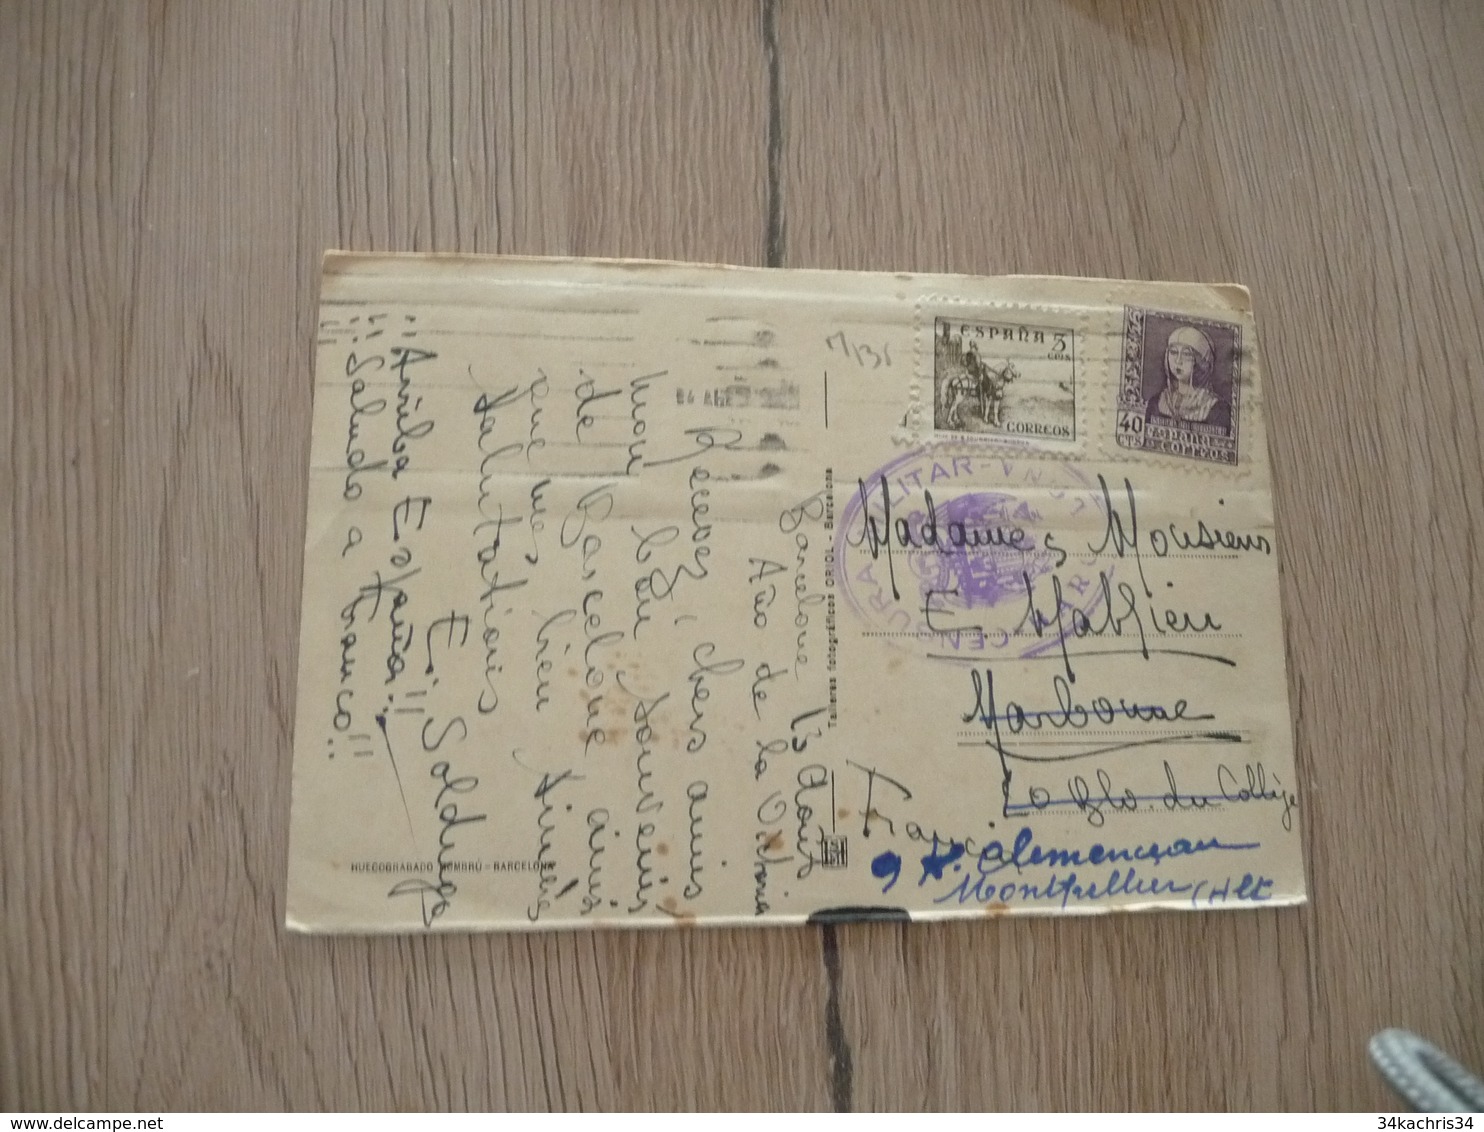 Barcelone 13 Août
Año de la Victoria
Recevez, chers amis,
mon bon souvenir
de Barcelone ainsi
que mes bien sincères
salutations
E. Solduga
¡¡Arriba España!!
¡¡Saludo a Franco!!
HUECOGRABADO MUMBRÚ - BARCELONA
Talleres fotográficos ORIOL - Barcelona
ESPAÑA 5
CTS
CORREOS
40
CTS
ESPAÑA
CORREOS
CENSURA MILITAR
Madame, Monsieur
E. Mathieu
Narbonne
20 Blv. du Collège
France
9 R. Clemenceau
Montpellier (Hlt
34kachris34
34kachris34